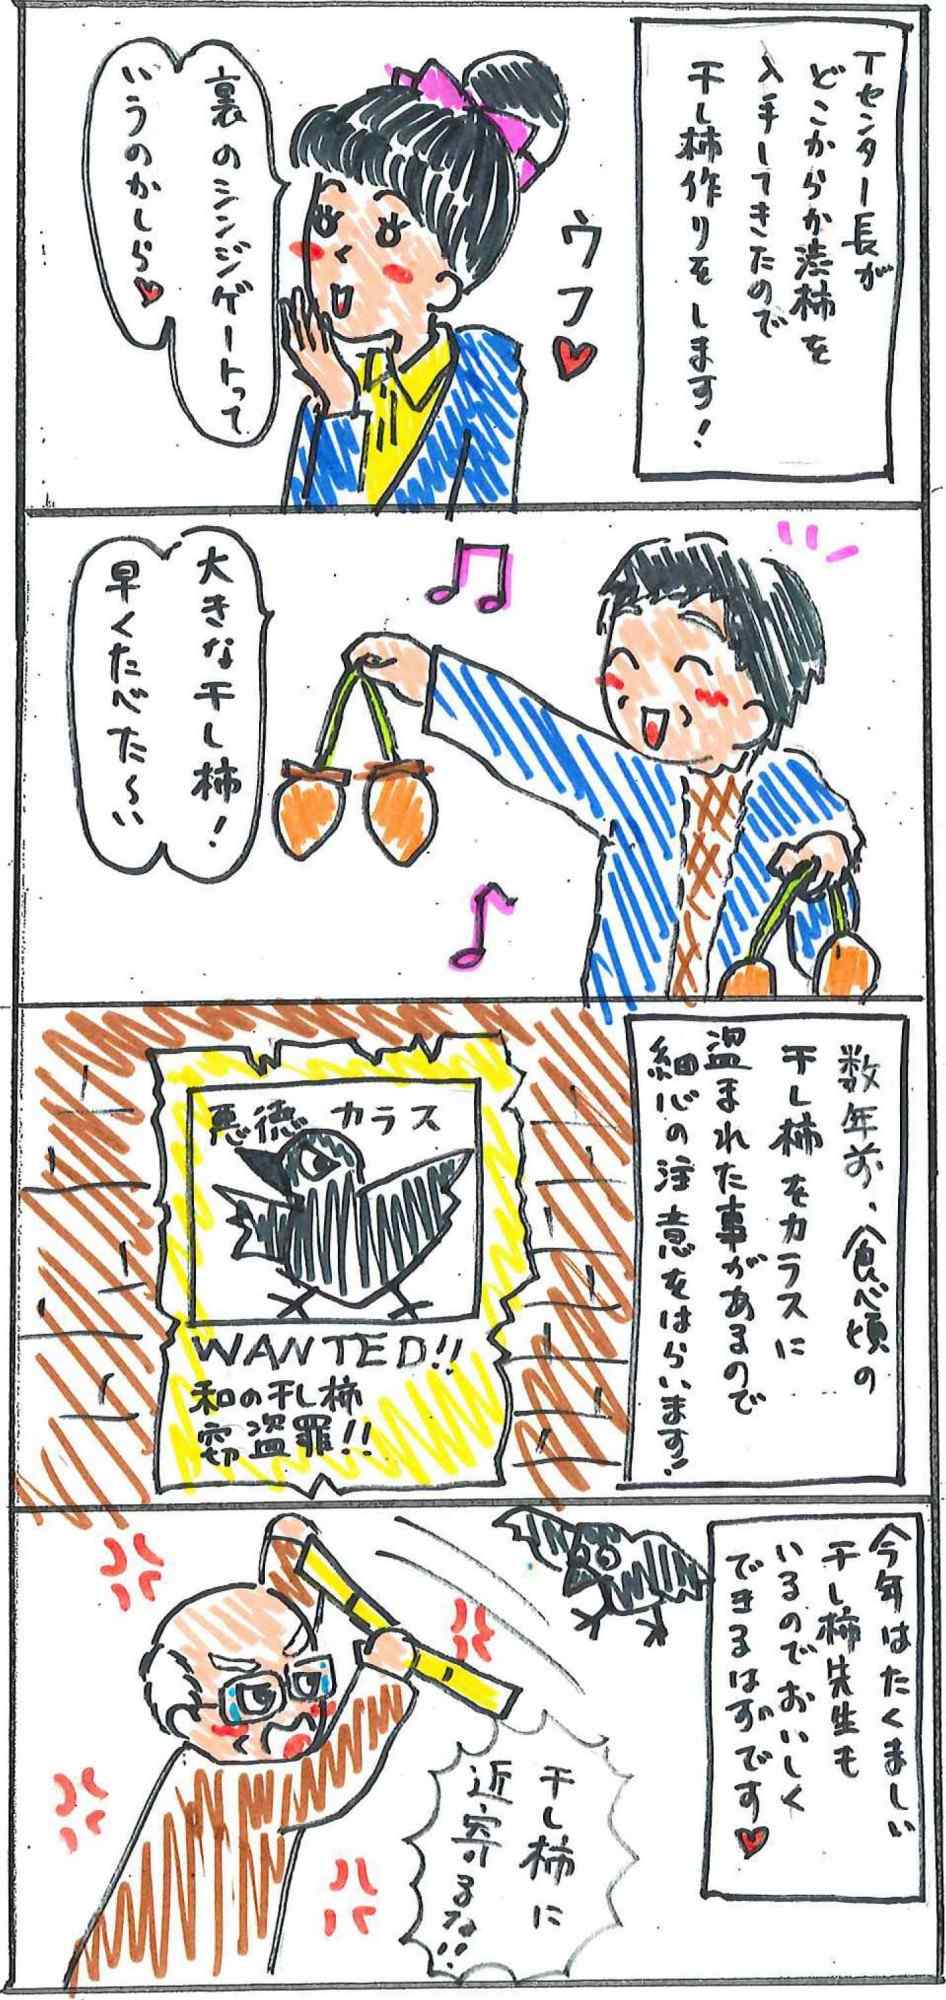 Tセンター長が
どこからか渋柿を
入手してきたので
干し柿作りをします！
ウフ♥
裏のシンジゲートって
いうのかしら♥
大きな干し柿！
早くたべた〜い
数年前、食べ頃の
干し柿をカラスに
盗まれた事があるので
細心の注意をはらいます！
悪徳 カラス
WANTED!!
和の干し柿
窃盗罪!!
今年はたくましい
干し柿先生も
いるのでおいしく
できるはずです♥
干し柿に
近寄るな!!